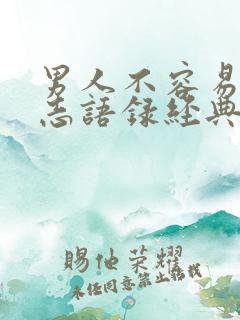 男人不容易
志語録經典
賜他荣耀
未经同意禁止转载